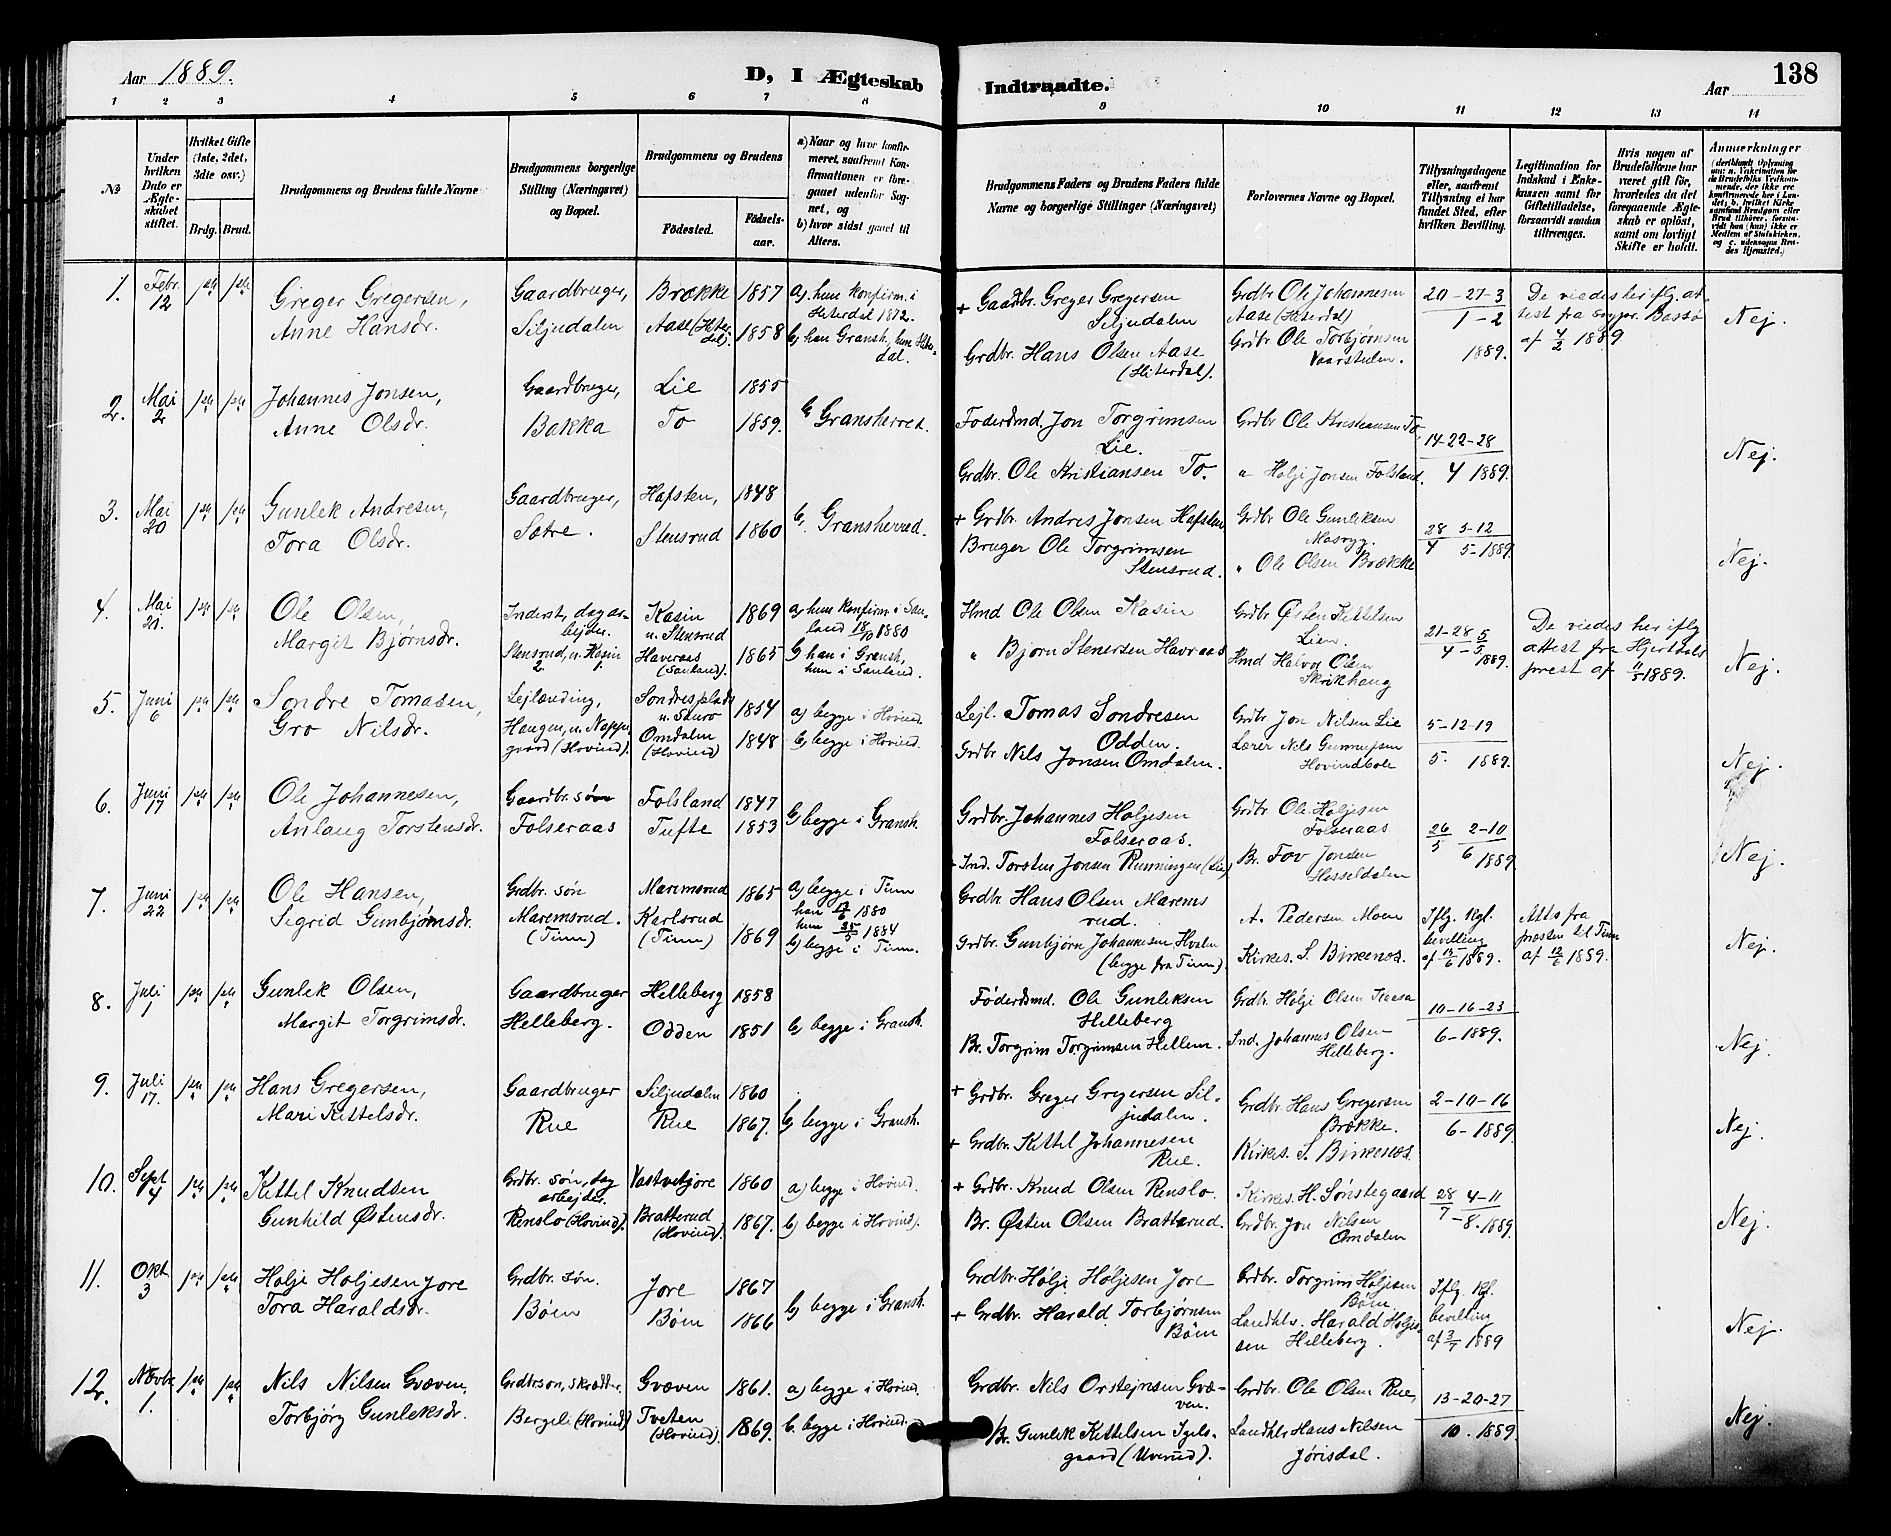 Aar 1889.
D, I Ægteskab Indtraadte.
Aar
138
1 2 3 4 5 6 7 8 9 10 11 12 13 14
No
Under hvilken Dato er Ægteskabet stiftet.
Hvilket Gifte (1ste, 2det, 3die osv.)
Brdg. Brud.
Brudgommens og Brudens fulde Navne
Brudgommens borgerlige Stilling (Næringsvei) og Bopæl.
Brudgommens og Brudens
Födested.
Födselsaar.
a) Naar og hvor konfirmeret, saafremt Konfirmationen er foregaaet udenfor Sognet, og
b) hvor sidst gaaet til Alters.
Brudgommens Faders og Brudens Faders fulde Navne og borgerlige Stillinger (Næringsvei)
Forlovernes Navne og Bopæl.
Tillysningsdagene eller, saafremt Tillysning ei har fundet Sted, efter hvilken Bevilling.
Legitimation for Indskud i Enkekassen samt for Giftetilladelse, forsaavidt saadan tiltrænges.
Hvis nogen af Brudefolkene har været gift för, hvorledes da det foregaaende Ægteskab er oplöst, samt om lovligt Skifte er holdt.
Anmærkninger
1. Febr. 12
Greger Gregersen,
Anne Hansdr.
Gaardbruger,
Siljudalen
Brække 1857
Aase (Hiterdal) 1858
a). hun konfirm. i Hiterdal 1872.
b) han Gransh., hun Hiterdal.
+ Gaardbr. Greger Gregersen Siljudalen
Grdbr. Hans Olsen Aase (Hiterdal).
Grdbr Ole Johannesen Aase (Hiterdal)
Grdbr. Ole Torbjørnsen Vaarstulen.
20-27-3
1-2
1889.
De viedes her iflg. attest fra sognpr. Bassø af 4/2 1889
Nej.
2. Mai 2
Johannes Jonsen,
Anne Olsdr.
Gaardbruger,
Bakka
Lie 1855
To 1859.
b, Gransherred.
Föderåmd. Jon Torgrimsen Lie.
Grdbr. Ole Kristiansen To.
Grdbr Ole Kristiansen To
" Holje Jonsen Folsland.
14-22-28
4 1889.
Nej.
3. Mai 20
Gunlek Andresen,
Tora Olsdr.
Gaardbruger,
Sætre.
Hafsten, 1848
Stensrud 1860
b, Gransherred.
+ Grdbr. Andres Jonsen Hafsten
Bruger Ole Torgrimsen Stensrud.
Grdbr Ole Gunleksen Masryg.
" Ole Olsen Brække
28 5-12
4 5-1889.
Nej.
4. Mai 21.
Ole Olsen,
Margit Bjørnsdr.
Inderst, dagarbejder.
Stensrud, u. Kasin
2 1.
Kasin u. Stensrud 1869
Haveraas (Sauland). 1865
a) hun konfirm. i Sauland 18/10 1880
b han i Gransh, hun i Sauland.
Hmd Ole Olsen Kasin
" Bjørn Stenersen Havraas
Grdbr Østen Kittelsen Lien.
Hmd Halvor Olsen Skrikhaug
21-28 5
4-5 1889.
De viedes her iflg attest fra Hjertdals prest af 11/5 1889.
Nej
5. Juni 6
Sondre Tomasen,
Gro Nilsdr.
Lejlænding,
Haugen, u. Nappegaard (Hovind).
Sondresplads 1854
Omdalen (Hovind) 1848
a) begge i Hovind.
b) begge i Hovind.
Lejl. Tomas Sondresen Odden.
Grdbr Nils Jonsen Omdalen.
Grdbr Jon Nilsen Lie
Lærer Nils Gunnufsen Hovindbole
5-12-19
5. 1889.
Nej.
6. Juni 17
Ole Johannesen,
Anlaug Torstensdr.
Gaardbr. søn
Folseraas
Folsland 1847
Tufte 1853
b, begge i Gransh.
Grdbr. Johannes Holjesen Folseraas.
+ Ind. Torsten Jonsen Runningen (Lie)
Grdbr. Ole Holjesen Folseraas
Br. Fov Jonsen Hesseldalen
26 2-10
5 6 1889.
Nej.
7. Juni 22
Ole Hansen,
Sigrid Gunbjørnsdr.
Grdbr. søn
Maremsrud.
(Tinn)
Maremsrud 1865
Karlsrud (Tinn) 1869
a) begge i Tinn
han 13/6 1880
hun 25/5 1884
b) begge i Tinn.
Grdbr Hans Olsen Maremsrud.
Grdbr. Gunbjørn Johannesen Hvalen
(begge fra Tinn).
A. Pedersen Moen
Kirkes. S. Birkenæs.
Iflg. Kgl. bevilling af 12/6 1889.
Atts fra præsten til Tinn af 12/6 1889.
Nej.
8. Juli 1
Gunlek Olsen,
Margit Torgrimsdr.
Gaardbruger
Helleberg.
Helleberg 1858
Odden 1851
b, begge i Gransh.
Föderåmd. Ole Gunleksen Helleberg
Br. Torgrim Torgrimsen Hellem.
Grdbr. Holje Olsen Kaasa
Ind. Johannes Olsen Helleberg.
10-16-23
6-1889.
Nej.
9. Juli 17.
Hans Gregersen,
Mari Kittelsdr.
Gaardbruger
Rue
Siljudalen 1860
Rue 1867.
b, begge i Gransh.
+ Grdbr. Greger Gregersen Siljudalen.
+ Grdbr. Kittel Johannesen Rue.
Grdbr. Hans Gregersen Brække.
Kirkes. S. Birkenæs.
2-10-16
6-1889.
Nej.
10. Sept 4
Kittel Knudsen
Gunhild Østensdr.
Grdbr. søn, dagarbejder.
Renslo (Hovind).
Vastvebjore 1860
Bratterud (Hovind). 1867.
a) begge i Hovind.
b) begge i Hovind.
+ Grdbr. Knud Olsen Renslo.
Br. Østen Olsen Bratterud.
Kirkes. H. Sønstegaard
Grdbr. Jon Nilsen Omdalen
28 4-11
7 -8. 1889.
Nej.
11. Okt 3
Holje Holjesen Jore
Tora Haraldsdr.
Grdbr. søn.
Bøen
Jore 1867
Bøen 1866
b, begge i Gransh.
Grdbr. Holje Holjesen Jore
+ Grdbr. Harald Torbjørnsen Bøen
Grdbr. Torgrim Holjesen Bøen.
Landhlr. Harald Holjesen Helleberg.
Iflg. Kgl. bevilling af 3/7 1889
Nej.
12. Novbr 1.
Nils Nilsen Gvæven,
Torbjørg Gunleksdr.
Grdbrsøn, skrædder.
Bergeli (Hovind)
Gvæven 1861.
Tveten (Hovind). 1869.
a) begge i Hovind.
b. begge i Hovind.
Grdbr. Nils Orstejnsen Gvæven.
Br. Gunlek Kittelsen Igelsgaard (Uverud).
Grdbr. Ole Olsen Rue,
Landhlr Hans Nilsen Jørisdal.
13-20-27
10. 1889.
Nej.